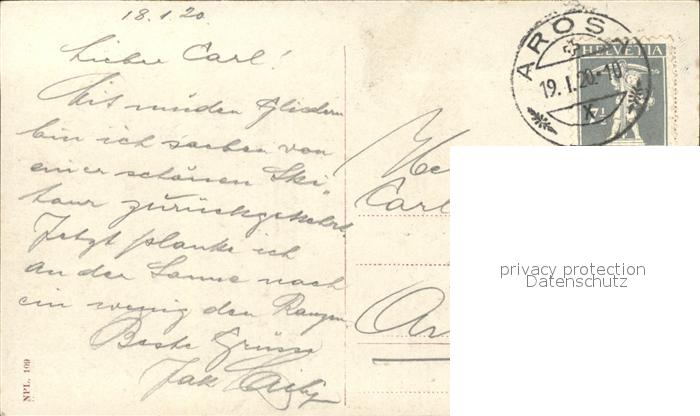 18.1.20.
Lieber Carl!
Mit müden Gliedern
bin ich soeben von
einer schönen Ski-
tour zurückgekehrt.
Jetzt planke ich
an der Sonne noch
ein wenig den Ranzen.
Beste Grüsse
Jak
Carl
Ar
AROSA
19.I.20.-10
X
HELVETIA
7½
NPL. 109
privacy protection
Datenschutz